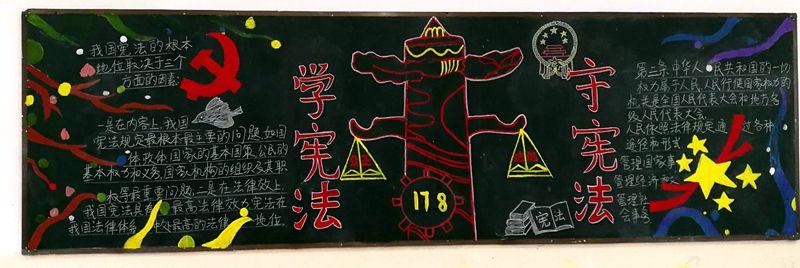 我国宪法的根本
地位取决于三个
方面的因素:
一是在内容上,我国
宪法规定最根本最重要的问题,如国
体政体国家的基本国策,公民的
基本权力和义务,国家机构的组织及其职
权等最重要问题,二是在法律效上
我国宪法具有最高法律效力宪法在
我国法律体系中处最高的法律地位。
学宪法
178
守宪法
宪法
第二条中华人民共和国的一切
权力属于人民,人民行使国家权力的
机关是全国人民代表大会和地方各
级人民代表大会
人民依照法律规定通过各种
途径和形式
管理国家事
管理经济和文
管理社
会事务